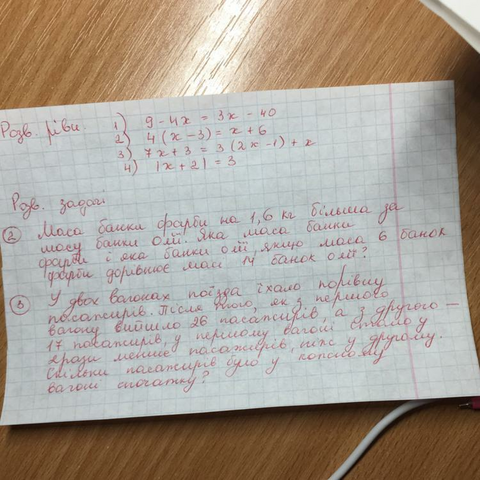 Розв. рівн. 1) 9 - 4x = 3x - 40
2) 4(x - 3) = x + 6
3) 7x + 3 = 3(2x - 1) + x
4) |x + 2| = 3
Розв. задачі
2 Маса банки фарби на 1,6 кг більша за
масу банки олії. Яка маса банки
фарби і яка банки олії якщо маса 6 банок
фарби дорівнює масі 14 банок олії?
3 У двох вагонах поїзда їхало порівну
пасажирів. Після того, як з першого
вагону вийшло 26 пасажирів, а з другого —
17 пасажирів, у першому вагоні стало у
рази менше пасажирів, ніж у другому.
Скільки пасажирів було у кожному
вагоні спочатку?